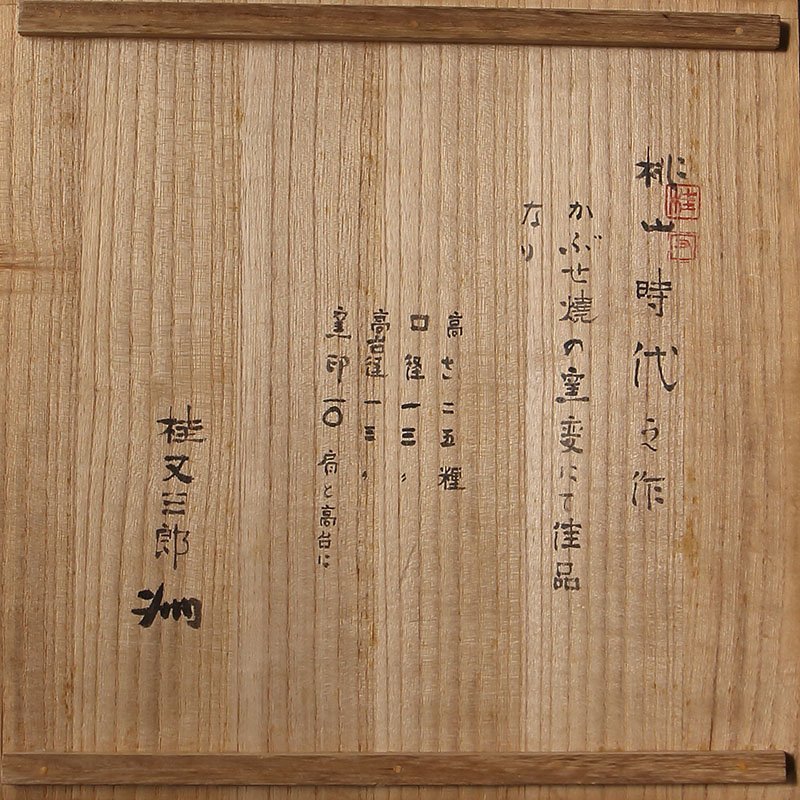 桃山時代之作
かぶせ焼の窯変にて佳品
なり
高さ二五糎
口径一三〃
高台径一三〃
窯印一〇 肩と高台に
桂又三郎